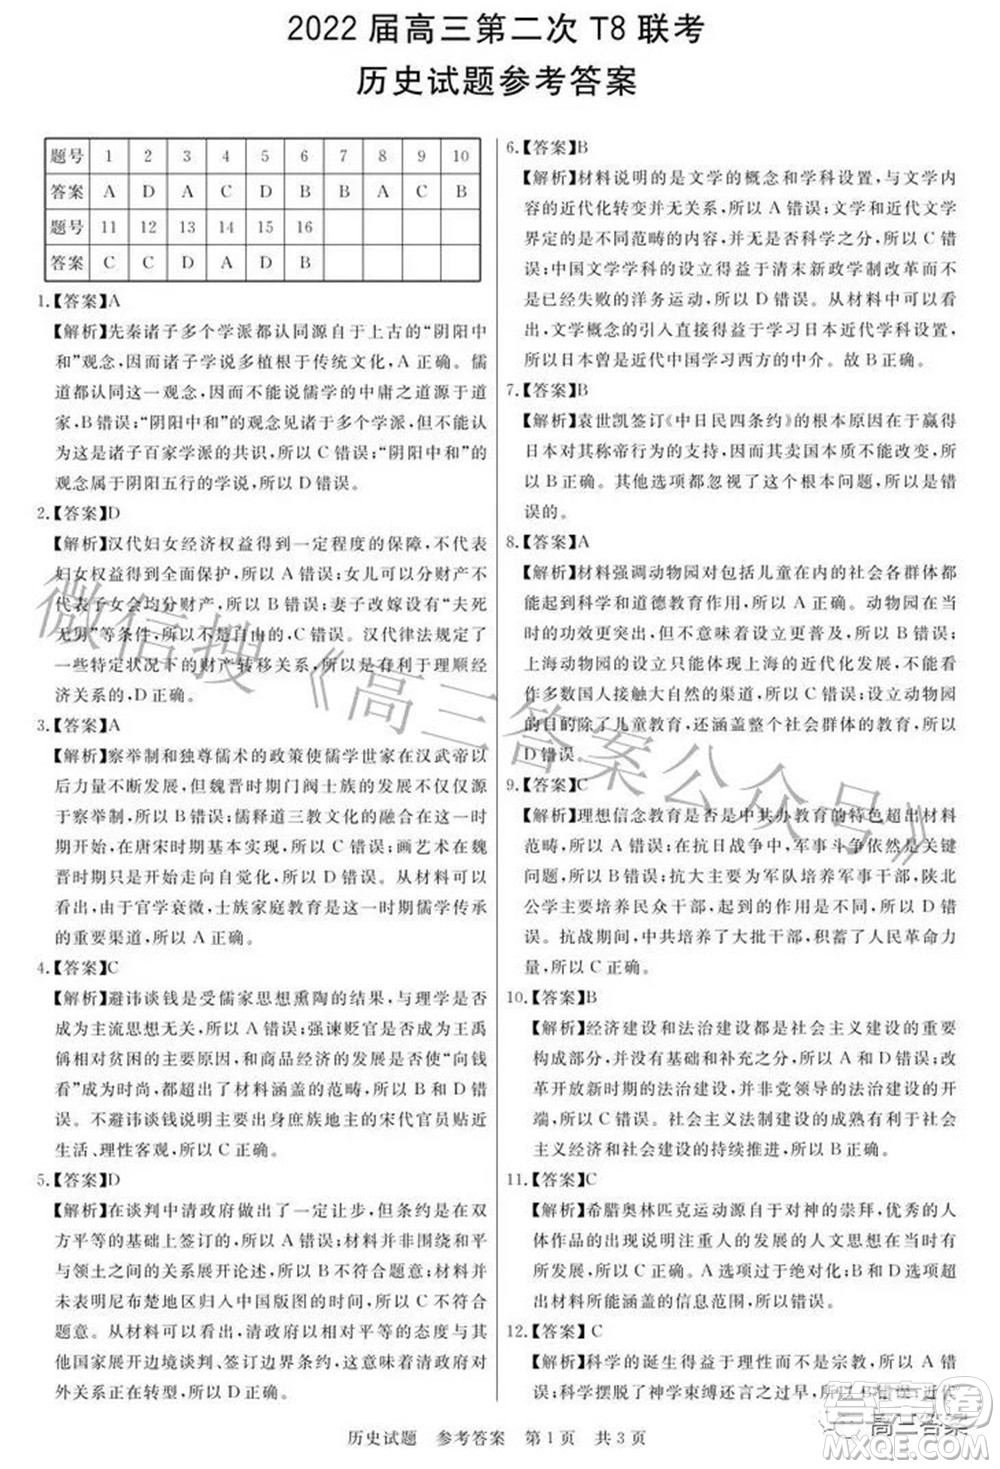 2022 届高三第二次 T8 联考
历史试题参考答案
题号 1 2 3 4 5 6 7 8 9 10
答案 A D A C D B B A C B
题号 11 12 13 14 15 16
答案 C C D A D B
1.【答案】A
【解析】先秦诸子多个学派都认同源自于上古的“阴阳中
和”观念，因而诸子学说多植根于传统文化，A 正确。儒
道都认同这一观念，因而不能说儒学的中庸之道源于道
家，B 错误；“阴阳中和”的观念见诸于多个学派，但不能认
为这是诸子百家学派的共识，所以 C 错误。“阴阳中和”的
观念属于阴阳五行的学说，所以 D 错误。
2.【答案】D
【解析】汉代妇女经济权益得到一定程度的保障，不代表
妇女权益得到全面保护，所以 A 错误；女儿可以分财产不
代表子女会均分财产，所以 B 错误；妻子改嫁设有“夫死
无男”等条件，所以不是自由的，C 错误。汉代律法规定了
一些特定状况下的财产转移关系，所以是有利于理顺经
济关系的，D 正确。
3.【答案】A
【解析】察举制和独尊儒术的政策使儒学世家在汉武帝以
后力量不断发展，但魏晋时期门阀士族的发展不仅仅源
于察举制，所以 B 错误；儒释道三教文化的融合在这一
时期开始，在唐宋时期基本实现，所以 C 错误；画艺术在魏
晋时期只是开始走向自觉化，所以 D 错误。从材料可以
看出，由于官学衰微，士族家庭教育是这一时期儒学传承
的重要渠道，所以 A 正确。
4.【答案】C
【解析】避讳谈钱是受儒家思想熏陶的结果，与理学是否
成为主流思想无关，所以 A 错误；强谏贬官是否成为王禹
偁相对贫困的主要原因、和商品经济的发展是否使“向钱
看”成为时尚，超出了材料涵盖的范畴，所以 B 和 D 错
误。不避讳谈钱说明主要出身庶族地主的宋代官员贴近
生活、理性客观，所以 C 正确。
5.【答案】D
【解析】在谈判中清政府做出了一定让步，但条约是在双
方平等的基础上签订的，所以 A 错误；材料并非围绕和平
与领土之间的关系展开论述，所以 B 不符合题意；材料并
未表明尼布楚地区归入中国版图的时间，所以 C 不符合
题意。从材料可以看出，清政府以相对平等的态度与其
他国家开展边境谈判、签订边界条约，此时的清政府的对
外关系正在转型，所以 D 正确。
6.【答案】B
【解析】材料说明的是文学的概念和学科设置，与文学内
容的近代化转变并无关系，所以 A 错误；文学和近代文学
界定的是不同范畴的内容，并无是否科学之分，所以 C 错
误；中国文学学科的设立得益于清末新政学制改革而不
是已经失败的洋务运动，所以 D 错误。从材料中可以看
出，文学概念的引入直接得益于学习日本近代学科设置，
所以日本曾是近代中国学习西方的中介。故 B 正确。
7.【答案】B
【解析】袁世凯签订《中日民四条约》的根本原因在于赢得
日本对其称帝行为的支持，因而卖国本质不能改变，所
以 B 正确。其他选项都忽视了这一根本问题，所以是错
误的。
8.【答案】A
【解析】材料强调动物园对包括儿童在内的社会各群体都
能起到科学和道德教育作用，所以 A 正确。动物园只是在
当时的功效更突出，但不能说其设立更普及，所以 B 错误；
上海动物园的设立只能体现上海的近代化发展，不能看
作多数国人接触大自然的渠道，所以 C 错误；设立动物园
的目的除了儿童教育，还涵盖整个社会群体的教育，所以
D 错误。
9.【答案】C
【解析】理想信念教育是否是中共办教育的特色超出材料
范畴，所以 A 错误；在抗日战争中，军事斗争依然是关键
问题，所以 B 错误；抗大主要为军队培养军事干部，陕北
公学主要培养民众干部，起到的作用不同，所以 D 错
误。抗战期间，中共培养了大批干部，积蓄了人民革命力
量，所以 C 正确。
10.【答案】B
【解析】经济建设和法治建设都是社会主义建设的重要
构成部分，并没有基础和补充之分，所以 A 和 D 错误；改
革开放新时期的法治建设，并非党领导的法治建设的开
端，所以 C 错误。社会主义法制建设的成熟有利于社会
主义经济和社会建设的持续推进，所以 B 正确。
11.【答案】C
【解析】希腊奥林匹克运动源于对神的崇拜，优秀的人
体作品的出现说明注重人的发展的人文思想在当时有
所发展，所以 C 正确；A 选项过于绝对化；B 和 D 选项超
出材料所能涵盖的信息范围，所以错误。
12.【答案】C
【解析】科学的诞生得益于理性而不是宗教，所以 A 错
误；科学摆脱了神学束缚还言之过早，所以 B 错误；近代
历史试题 参考答案 第 1 页 共 3 页
微信搜《高三答案公众号》
高三答案
答案圈
MXQE.COM